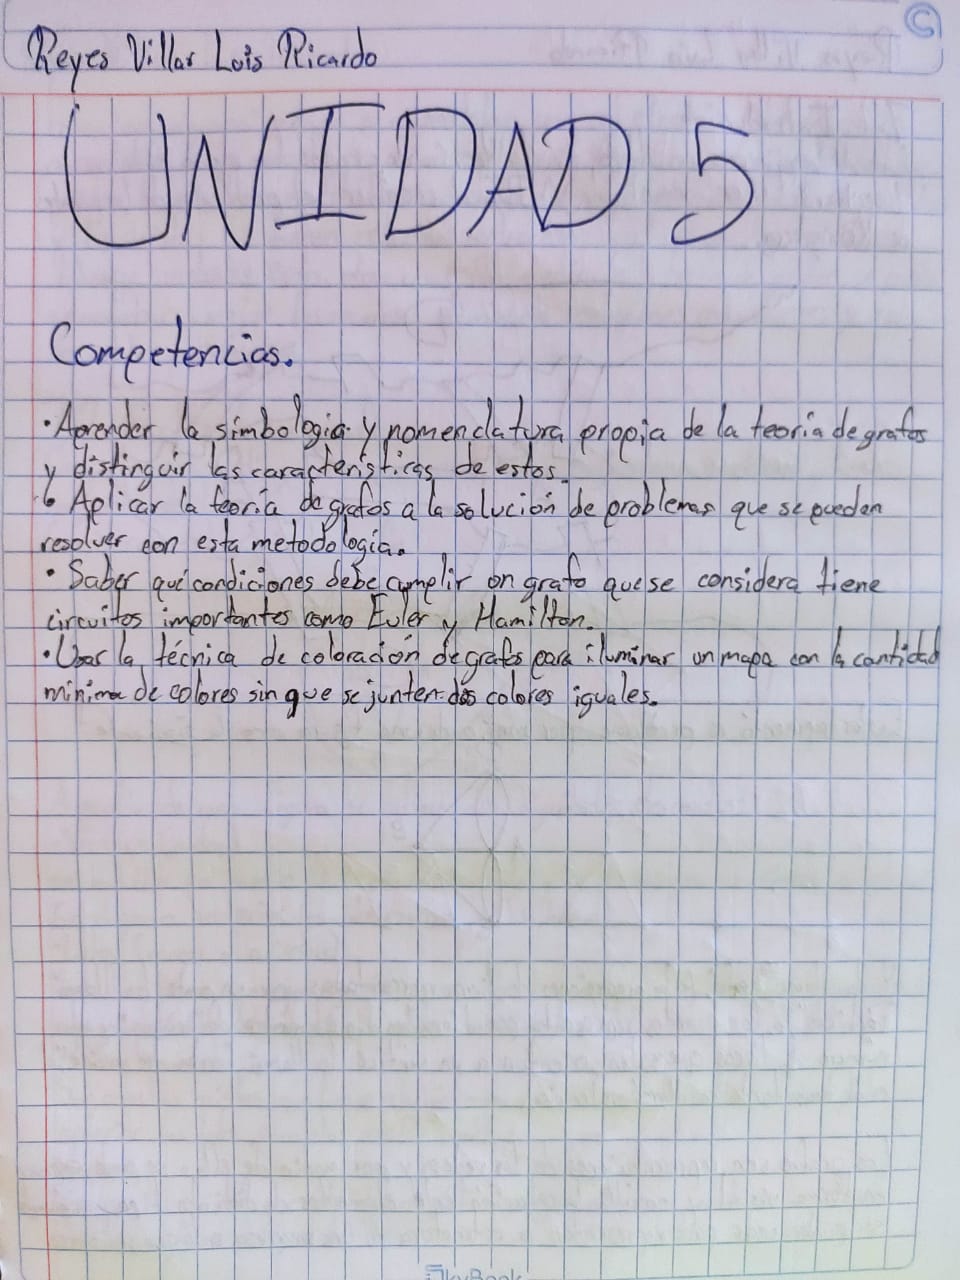 Reyes Villar Luis Ricardo
UNIDAD 5
Competencias.
• Aprender la simbologia y nomenclatura propia de la teoria de grafos
y distinguir las caracteristicas de estos.
• Aplicar la teoria de grafos a la solución de problemas que se pueden
resolver con esta metodologia.
• Saber qué condiciones debe cumplir un grafo que se considera tiene
circuitos importantes como Euler y Hamilton.
• Usar la técnica de coloración de grafos para iluminar un mapa con la cantidad
minima de colores sin que se junten dos colores iguales.
SkyBook